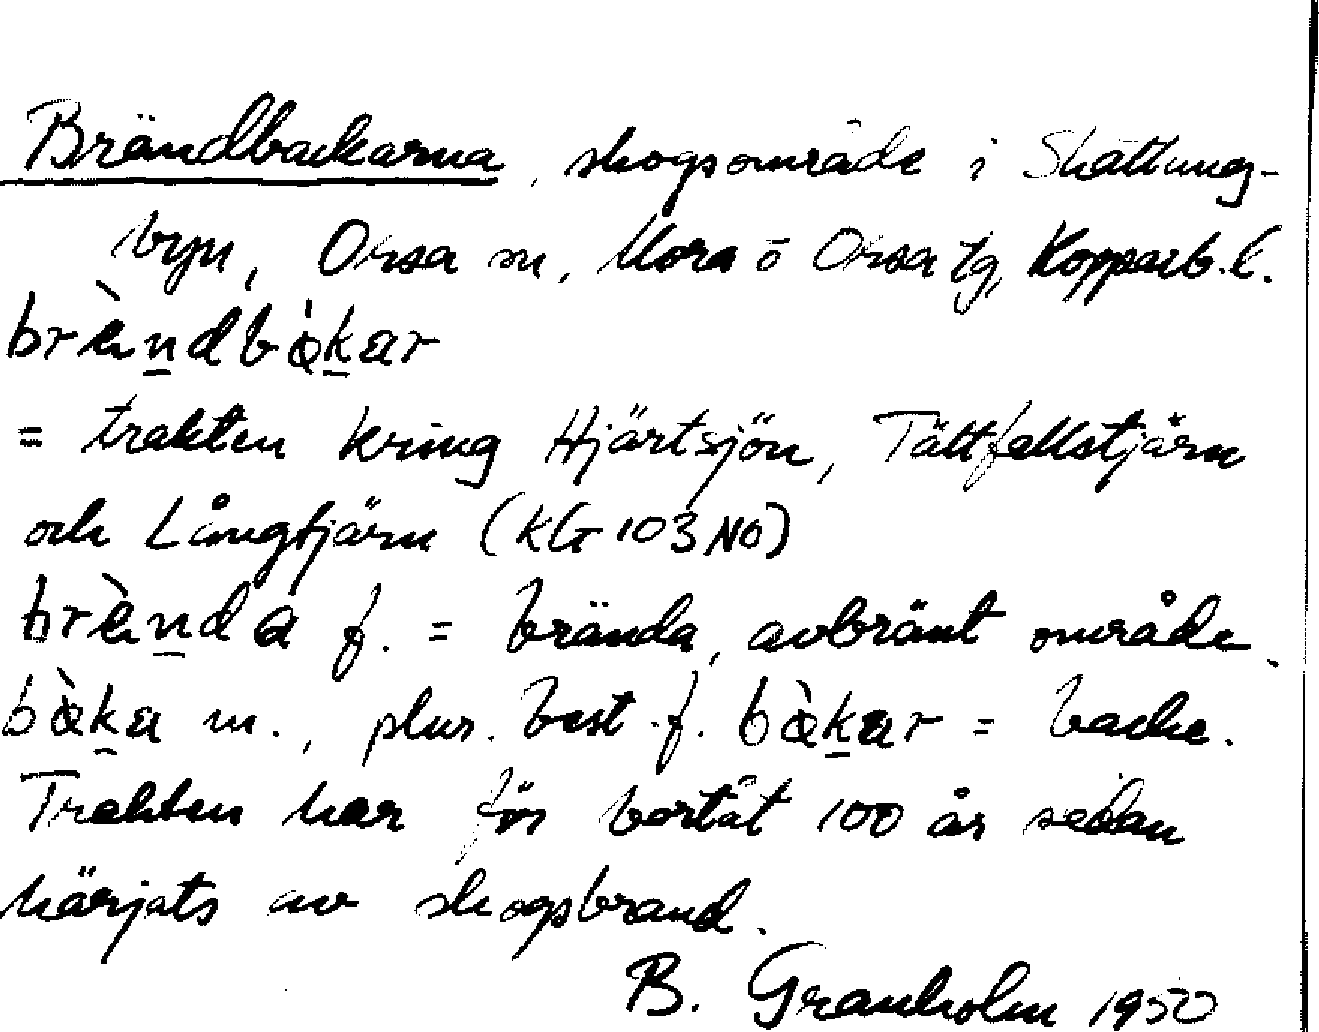 Brändbackarna, skogsområde i Skattung-
byn, Orsa sn, Mora o Orsa tg, Kopparb. l.
brèndbàkar
= trakten kring Hjärtsjön, Tättfallstjärn
och Långtjärn (KG 103 NO)
brènda f. = brända, avbränt område.
bàka m., plur. best. f. bàkar = backe.
Trakten har för bortåt 100 år sedan
härjats av skogsbrand.
B. Granholm 1950